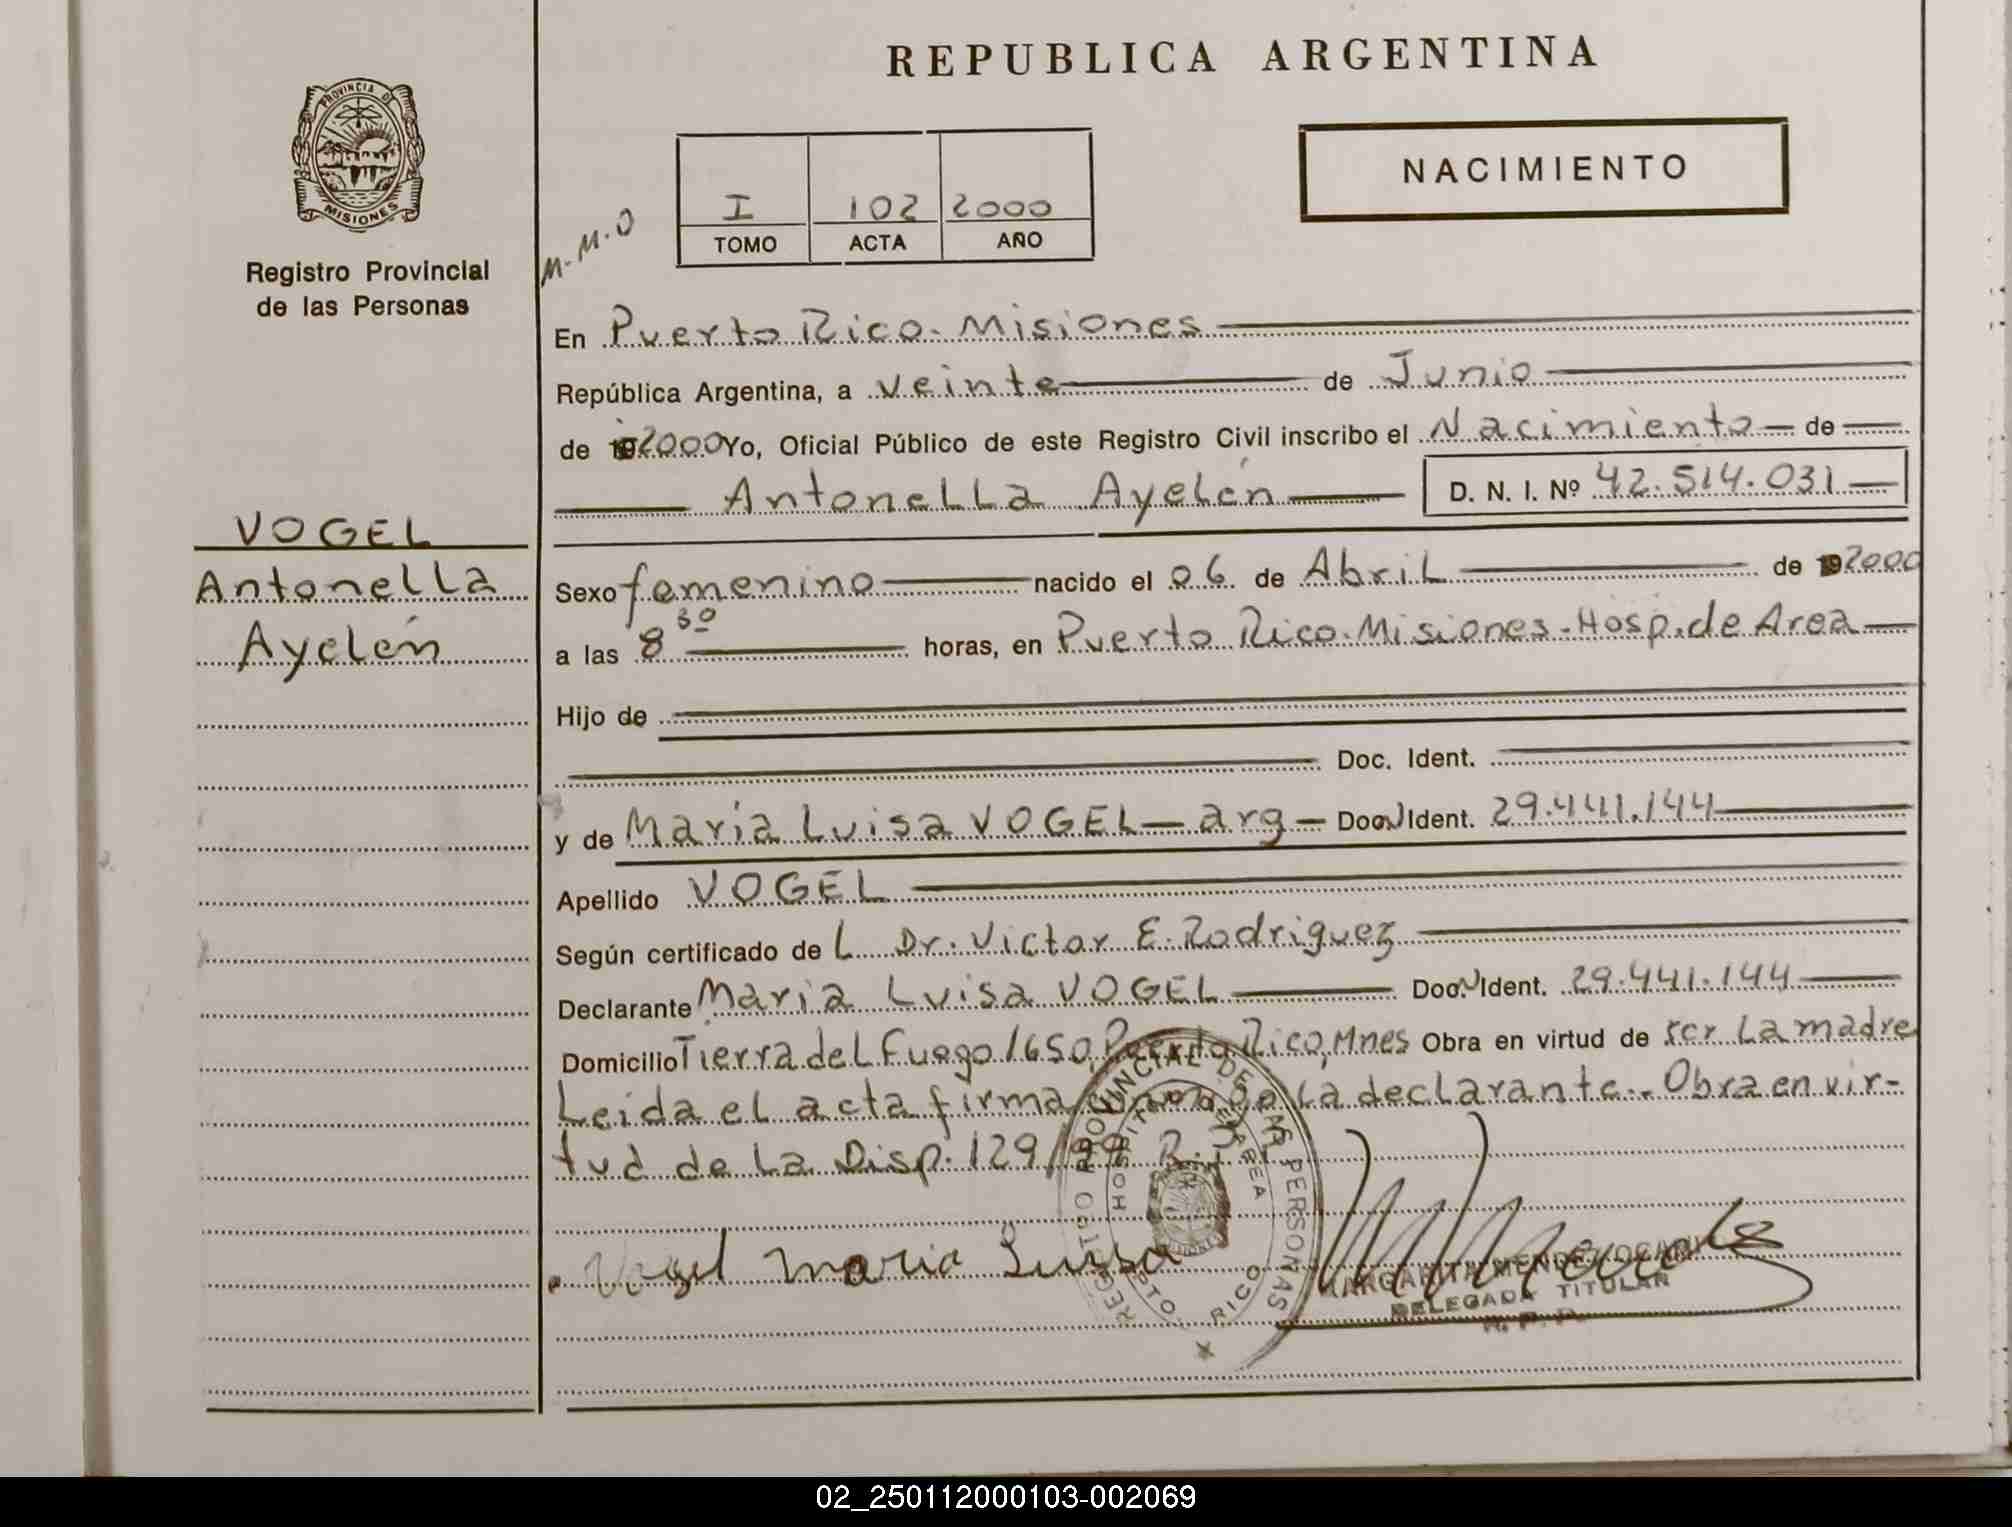 REPUBLICA ARGENTINA
PROVINCIA DE
MISIONES
Registro Provincial
de las Personas
M.M.O
I 102 2000
TOMO ACTA AÑO
NACIMIENTO
En Puerto Rico. Misiones
República Argentina, a veinte de Junio
de 19 2000 Yo, Oficial Público de este Registro Civil inscribo el Nacimiento de
Antonella Ayelén D. N. I. Nº 42.514.031
VOGEL
Antonella
Ayelén
Sexo femenino nacido el 06 de Abril de 19 2000
a las 8 30 horas, en Puerto Rico. Misiones - Hosp. de Area
Hijo de
Doc. Ident.
y de Maria Luisa VOGEL - arg - Doc. Ident. 29.441.144
Apellido VOGEL
Según certificado de L Dr. Victor E. Rodriguez
Declarante Maria Luisa VOGEL Doc. Ident. 29.441.144
Domicilio Tierra del Fuego 1650, Puerto Rico, Mnes Obra en virtud de ser La madre
Leida el acta firma La declarante.. Obra en vir-
tud de La Disp. 129/99
REGISTRO PROVINCIAL DE LAS PERSONAS
HOSPITAL DE AREA
PTO RICO
Vogel Maria Luisa
MARGARITA MENDEZ
DELEGADA TITULAR
R. P. P.
02_250112000103-002069